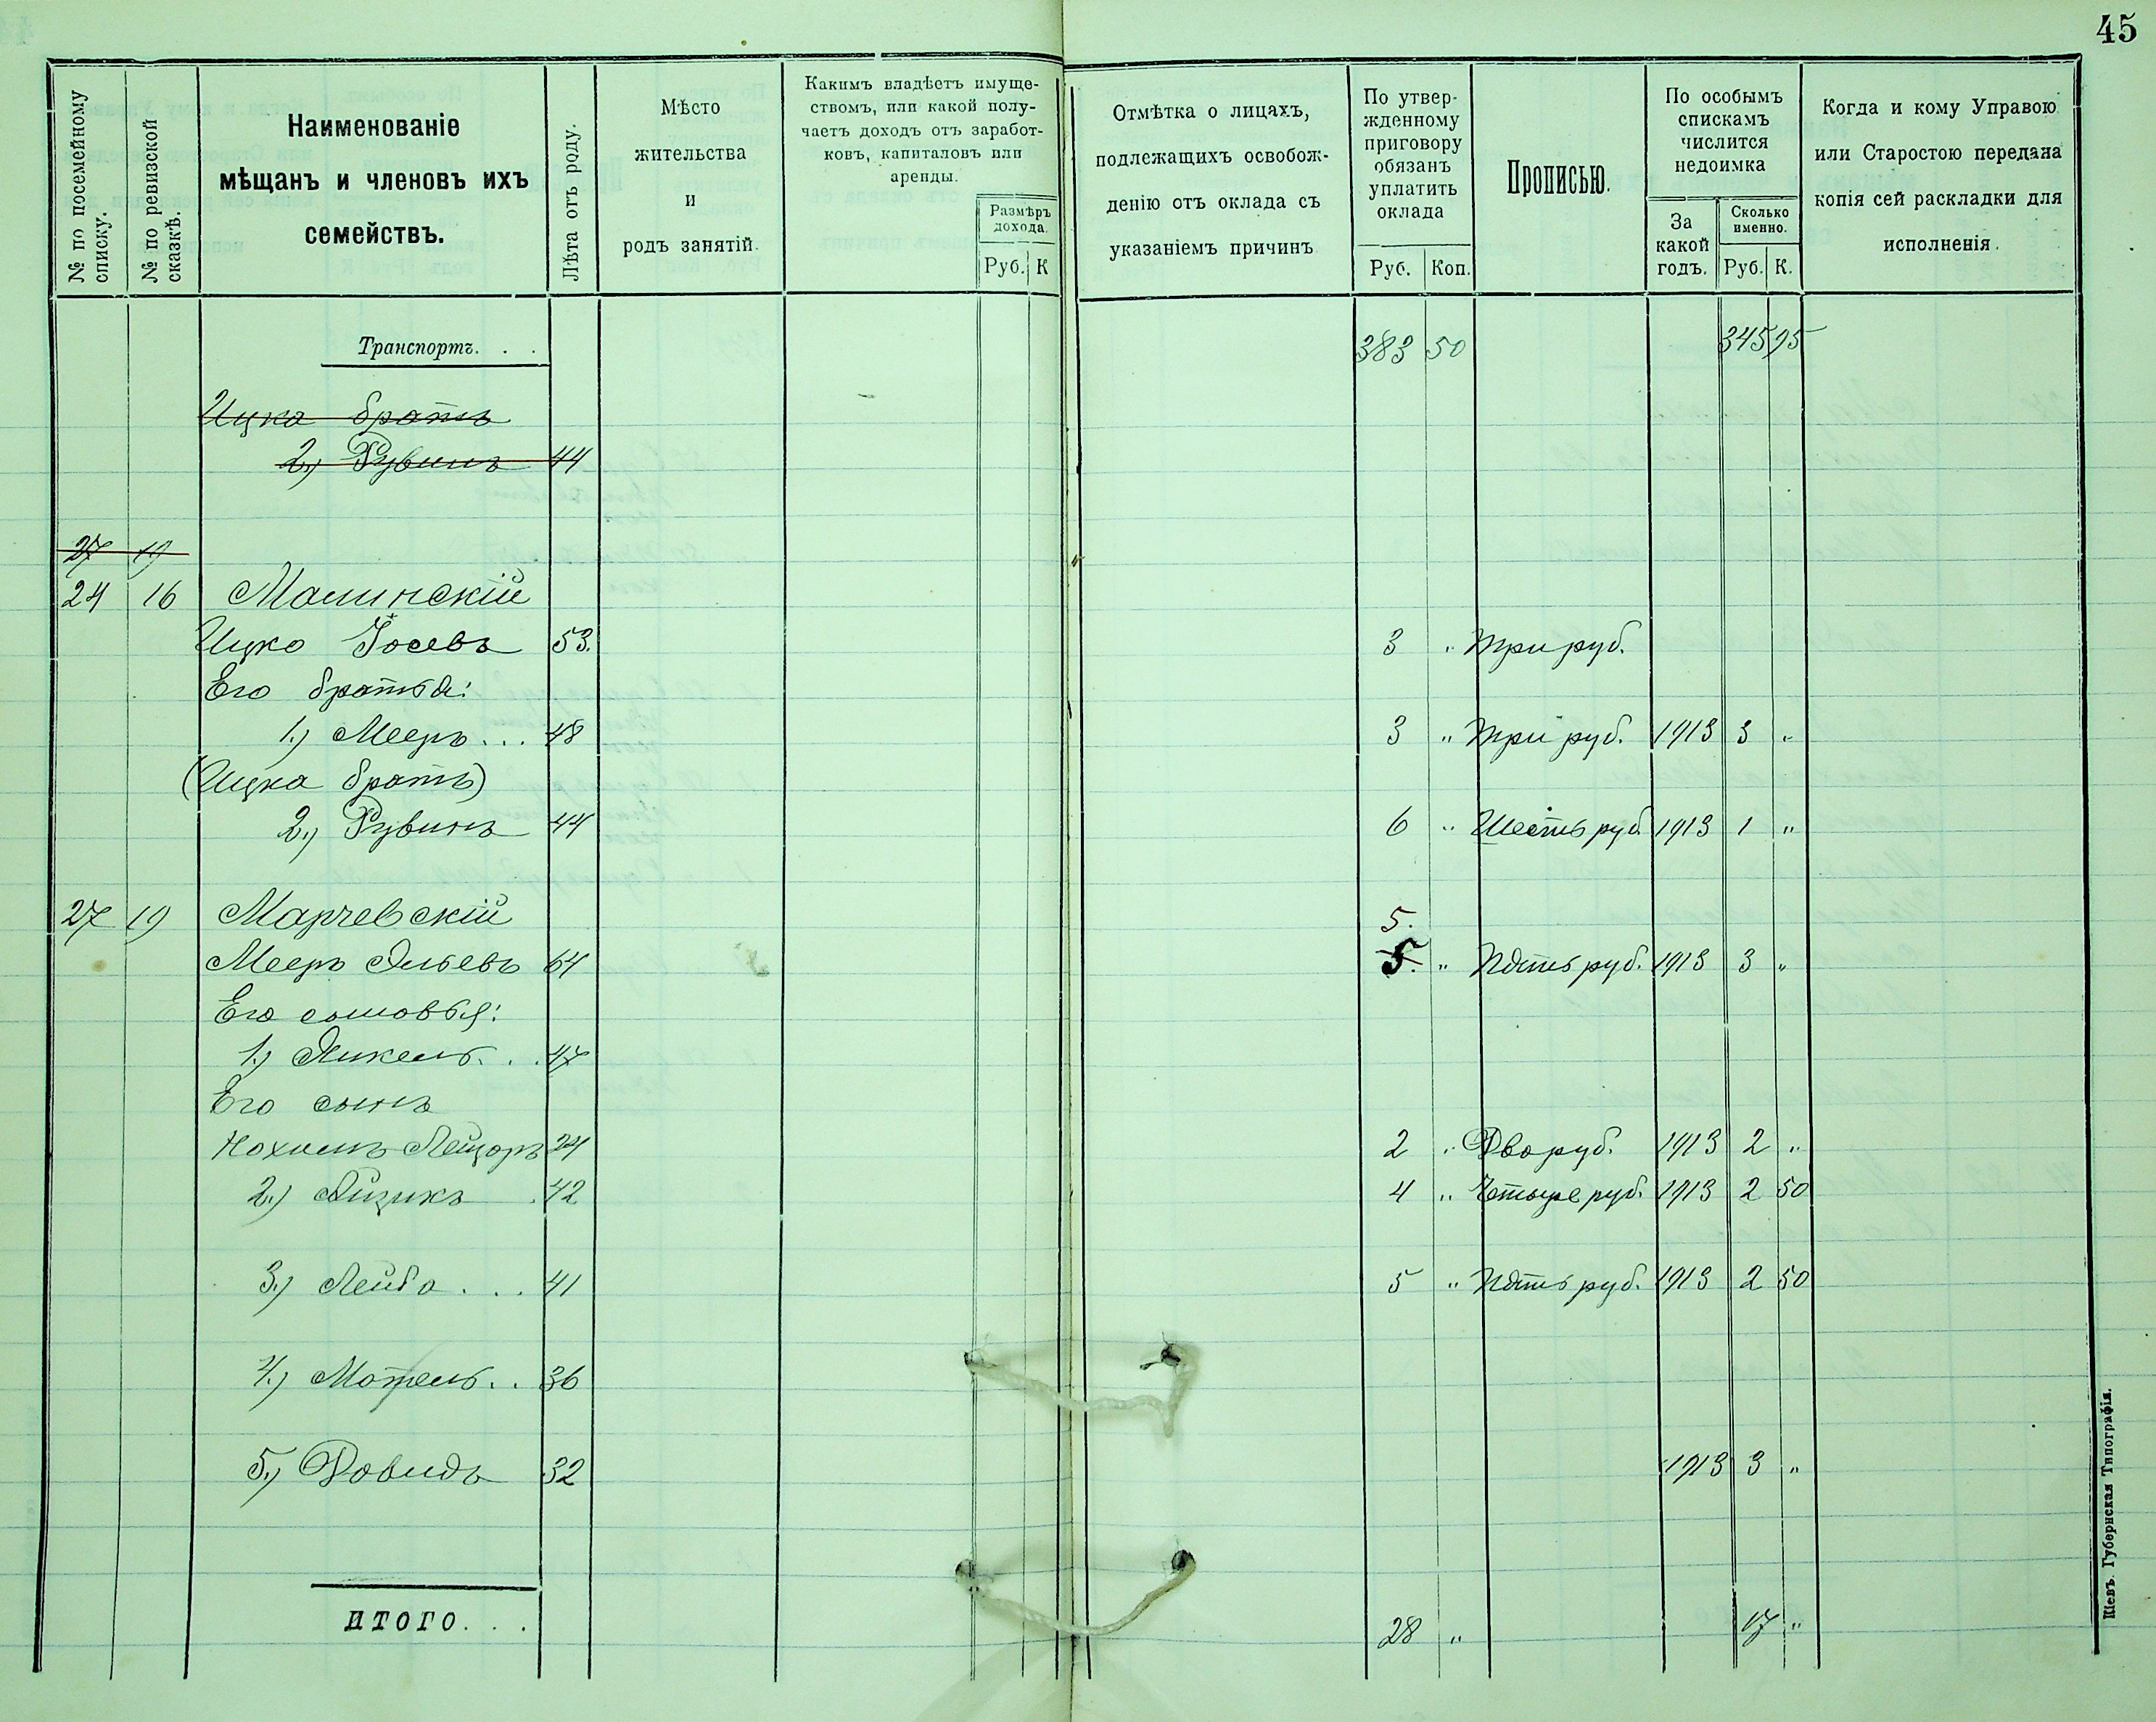 45
№ по посемейному списку.
№ по ревизской сказкѣ.
Наименованіе
мѣщанъ и членовъ ихъ
семействъ.
Лѣта отъ роду.
Мѣсто
жительства
и
родъ занятій.
Какимъ владѣетъ имуще-
ствомъ, или какой полу-
чаетъ доходъ отъ заработ-
ковъ, капиталовъ или
аренды.
Размѣръ
дохода.
Руб. К
Отмѣтка о лицахъ,
подлежащихъ освобож-
денію отъ оклада съ
указаніемъ причинъ
По утвер-
жденному
приговору
обязанъ
уплатить
оклада
Руб. Коп.
Прописью.
По особымъ
спискамъ
числится
недоимка
За
какой
годъ.
Сколько
именно.
Руб. К.
Когда и кому Управою
или Старостою передана
копія сей раскладки для
исполненія.
Транспортъ. . . 383 50 345 95
Ицка братъ
2.) Рувинъ 44
27 19
24 16 Малинскій
Ицко Іосевъ 53. 3 " Три руб.
Его братья:
1.) Мееръ... 48 3 " Три руб. 1913 3 "
(Ицка братъ)
2.) Рувинъ 44 6 " Шесть руб. 1913 1 "
27 19 Марчевскій 5.
Мееръ Эльевъ 64 5. " Пять руб. 1913 3 "
Его сыновья:
1.) Янкель. . . 47
Его сынъ
Нохимъ Лейзоръ 24 2 " Два руб. 1913 2 "
2.) Айзикъ . 42 4 " Четыре руб. 1913 2 50
3.) Лейба . . . 41 5 " Пять руб. 1913 2 50
4.) Мотель. . 36
5.) Довидъ 32 1913 3 "
ИТОГО. . . 28 " 17 "
Кіевъ. Губернская Типографія.